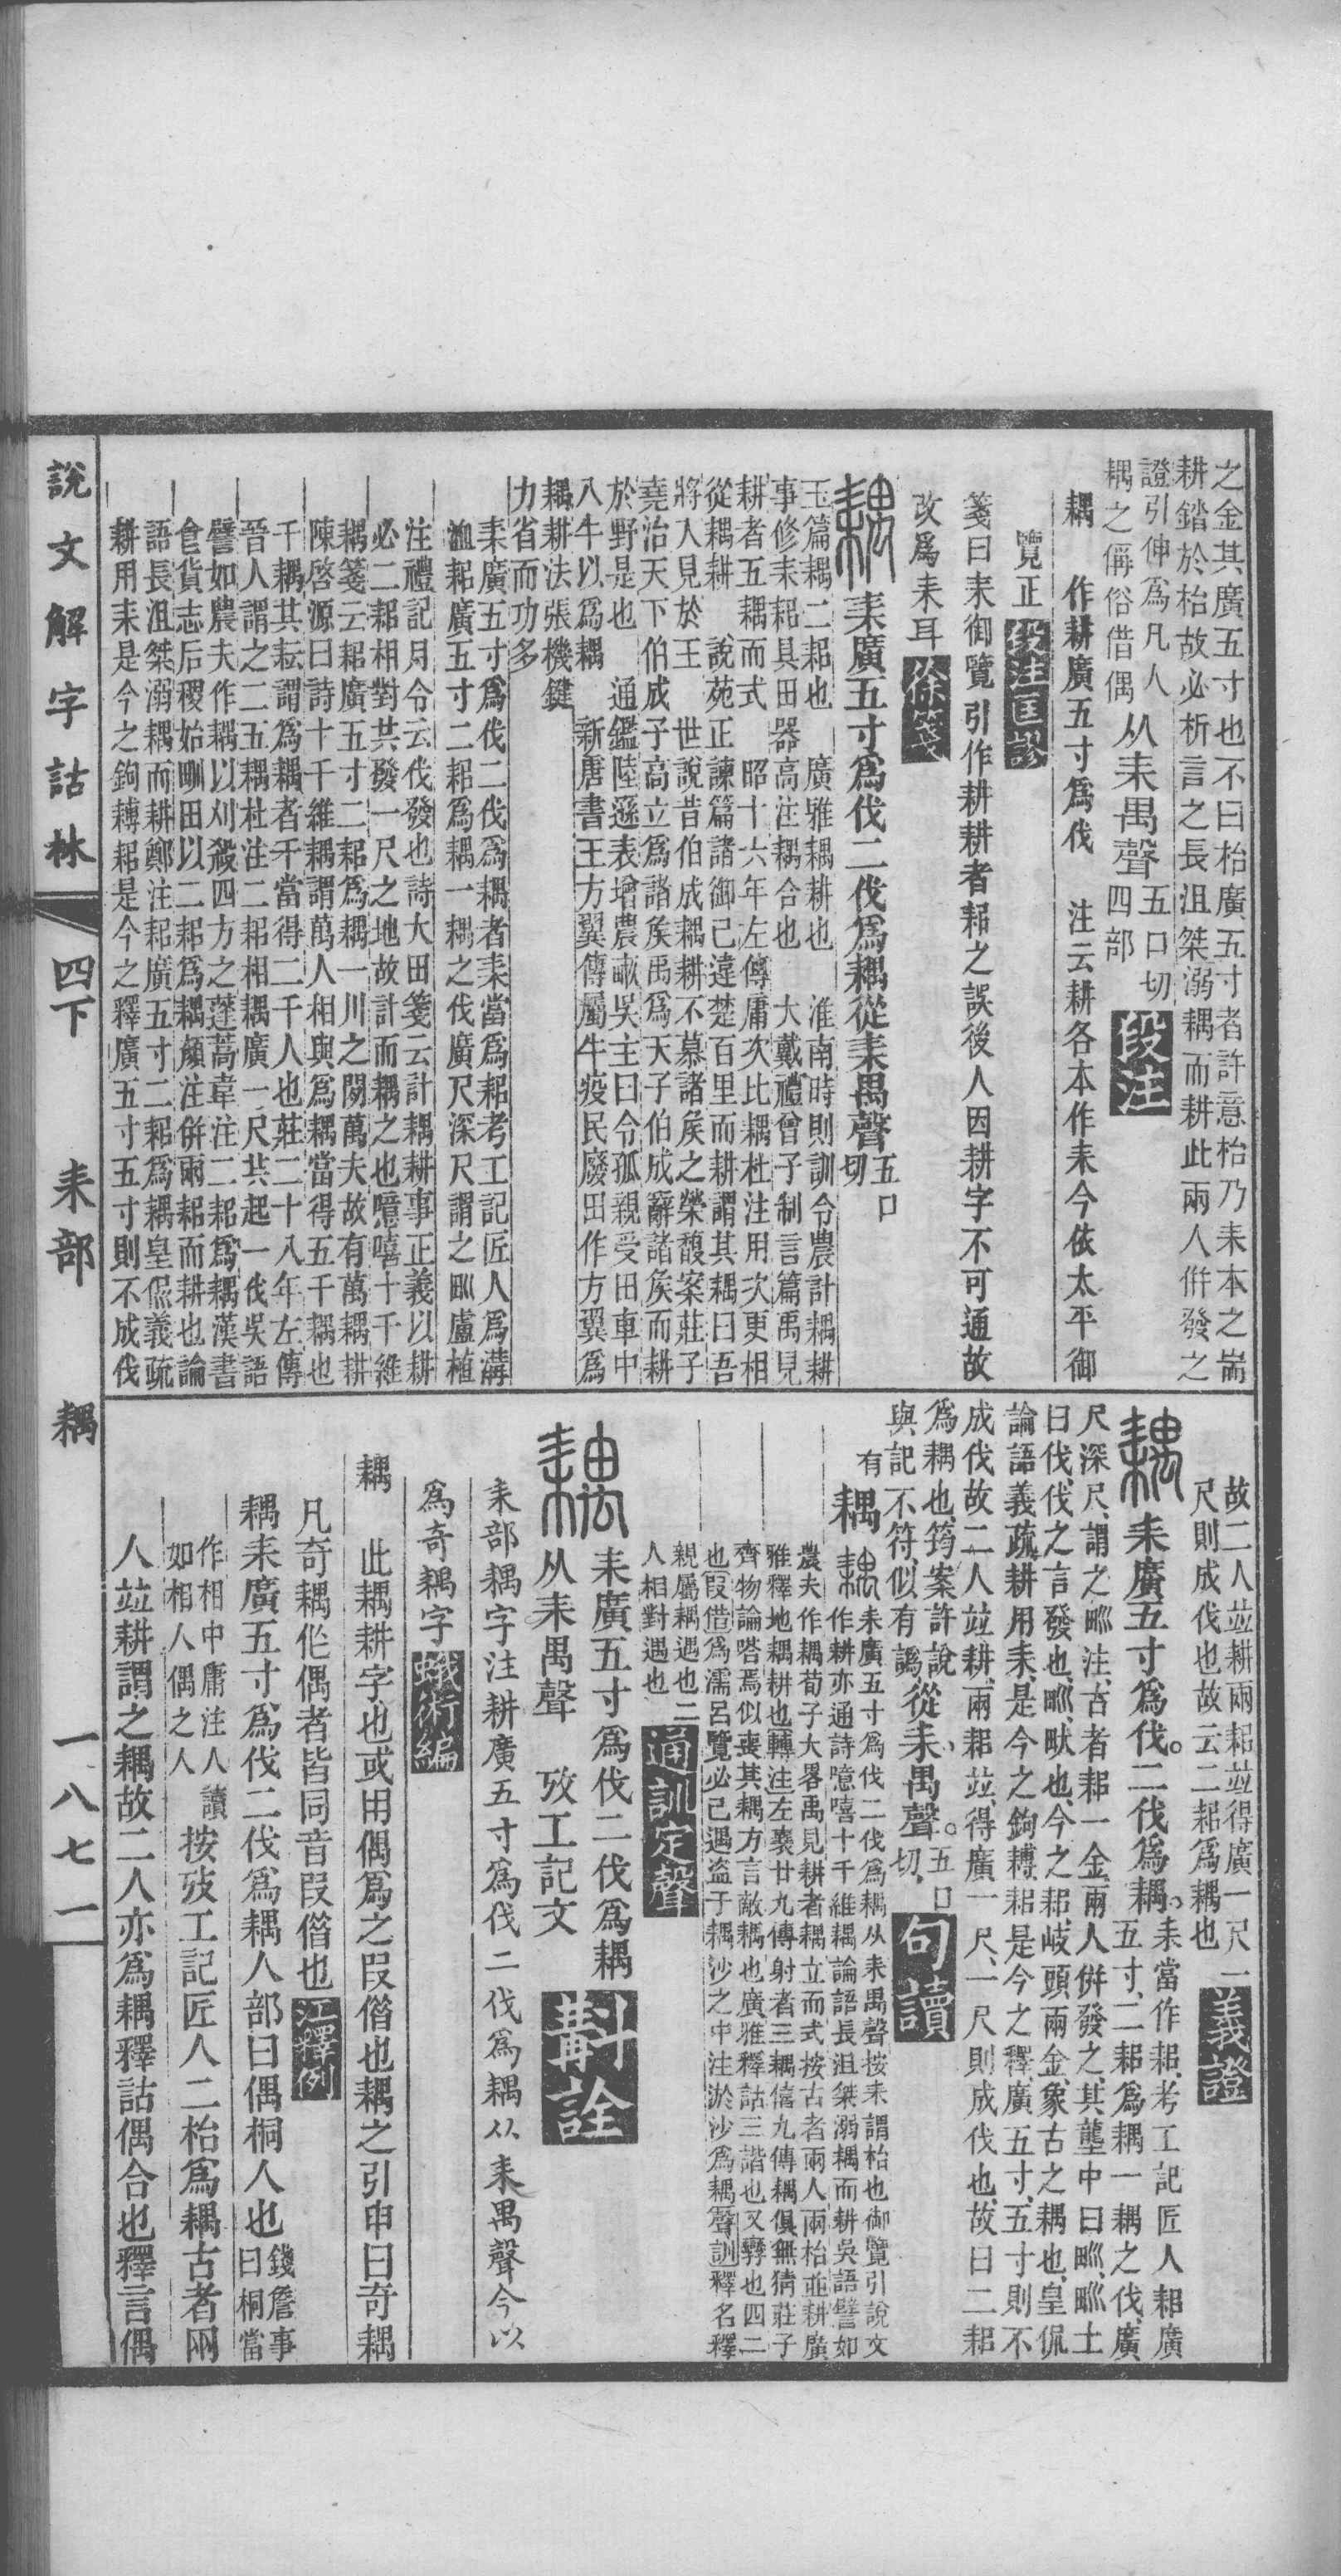 之金其廣五寸也不曰枱廣五寸者許意枱乃耒本之耑
耕鍇於枱故必析言之長沮桀溺耦而耕此兩人併發之
證引伸爲凡人
耦之偁俗借偶
从耒禺聲
五口切
四部
段注
耦 作耕廣五寸爲伐 注云耕各本作耒今依太平御
覽正
段注匡謬
箋曰耒御覽引作耕耕者耜之誤後人因耕字不可通故
改爲耒耳
徐箋
耒廣五寸爲伐二伐爲耦從耒禺聲
五口
切
玉篇耦二耜也 廣雅耦耕也 淮南時則訓令農計耦耕
事修耒耜具田器高注耦合也 大戴禮曾子制言篇禹見
耕者五耦而式 昭十六年左傳庸次比耦杜注用次更相
從耦耕 說苑正諫篇諸御己違楚百里而耕謂其耦曰吾
將入見於王 世說昔伯成耦耕不慕諸矦之榮馥案莊子
堯治天下伯成子高立爲諸矦禹爲天子伯成辭諸矦而耕
於野是也 通鑑陸遜表增農畝吳主曰令孤親受田車中
八牛以爲耦 新唐書王方翼傳屬牛疫民廢田作方翼爲
耦耕法張機鍵
力省而功多
耒廣五寸爲伐二伐爲耦者耒當爲耜考工記匠人爲溝
洫耜廣五寸二耜爲耦一耦之伐廣尺深尺謂之𤰕盧植
注禮記月令云伐發也詩大田箋云計耦耕事正義以耕
必二耜相對共發一尺之地故計而耦之也噫嘻十千維
耦箋云耜廣五寸二耜爲耦一川之閒萬夫故有萬耦耕
陳啓源曰詩十千維耦謂萬人相與爲耦當得五千耦也
千耦其耘謂爲耦者千當得二千人也莊二十八年左傳
晉人謂之二五耦杜注二耜相耦廣一尺共起一伐吳語
譬如農夫作耦以刈殺四方之蓬蒿韋注二耜爲耦漢書
食貨志后稷始甽田以二耜爲耦顏注併兩耜而耕也論
語長沮桀溺耦而耕鄭注耜廣五寸二耜爲耦皇侃義疏
耕用耒是今之鉤鎛耜是今之釋廣五寸五寸則不成伐
故二人竝耕兩耜竝得廣一尺一
尺則成伐也故云二耜爲耦也
義證
耒廣五寸爲伐。二伐爲耦。
耒當作耜、考工記匠人耜廣
五寸、二耜爲耦一耦之伐、廣
尺深尺、謂之𤰕、注、古者耜一金、兩人併發之、其壟中曰𤰕、𤰕土
曰伐、伐之言發也、𤰕、畎也、今之耜、岐頭兩金、象古之耦也、皇侃
論語義疏、耕用耒、是今之鉤鎛、耜是今之釋、廣五寸、五寸則不
成伐故二人竝耕、兩耜竝、得廣一尺、一尺則成伐也、故曰二耜
爲耦也、筠案許說、
與記不符、似有譌、
從耒、禺聲。
五口
切、
句讀
有耦
耒廣五寸爲伐二伐爲耦从耒禺聲按耒謂枱也御覽引說文
作耕亦通詩噫嘻十千維耦論語長沮桀溺耦而耕吳語譬如
農夫作耦荀子大畧禹見耕者耦立而式按古者兩人兩枱並耕廣
雅釋地耦耕也轉注左襄廿九傳射者三耦僖九傳耦俱無猜莊子
齊物論嗒焉似喪其耦方言敵耦也廣雅釋詁三諧也又孶也四二
也叚借爲濡呂覽必己遇盜于耦沙之中注淤沙爲耦聲訓釋名釋
親屬耦遇也二
人相對遇也
通訓定聲
耒廣五寸爲伐二伐爲耦
从耒禺聲 攷工記文
斠詮
耒部耦字注耕廣五寸爲伐二伐爲耦从耒禺聲今以
爲奇耦字
蛾術編
耦 此耦耕字也或用偶爲之叚借也耦之引申曰奇耦
凡奇耦作偶者皆同音叚借也
江釋例
耦耒廣五寸爲伐二伐爲耦人部曰偶桐人也
錢詹事
曰桐當
作相中庸注人讀
如相人偶之人
按攷工記匠人二枱爲耦古者兩
人竝耕謂之耦故二人亦爲耦釋詁偶合也釋言偶
說文解字詁林
四下
耒部 耦
一八七一